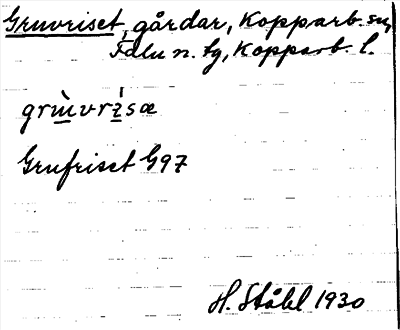 Gruvriset, gårdar, Kopparb. sn,
Falu n. tg, Kopparb. l.
grùvrìsæ
Grufriset G97
H. Ståhl 1930